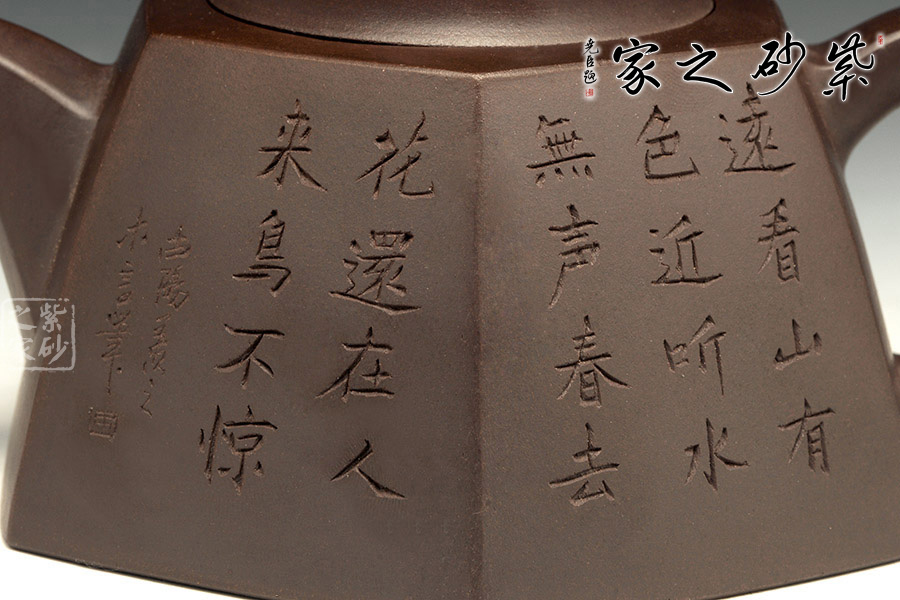 紫砂之家
遠看山有
色近听水
無声春去
花還在人
来鳥不惊
紫砂
之家